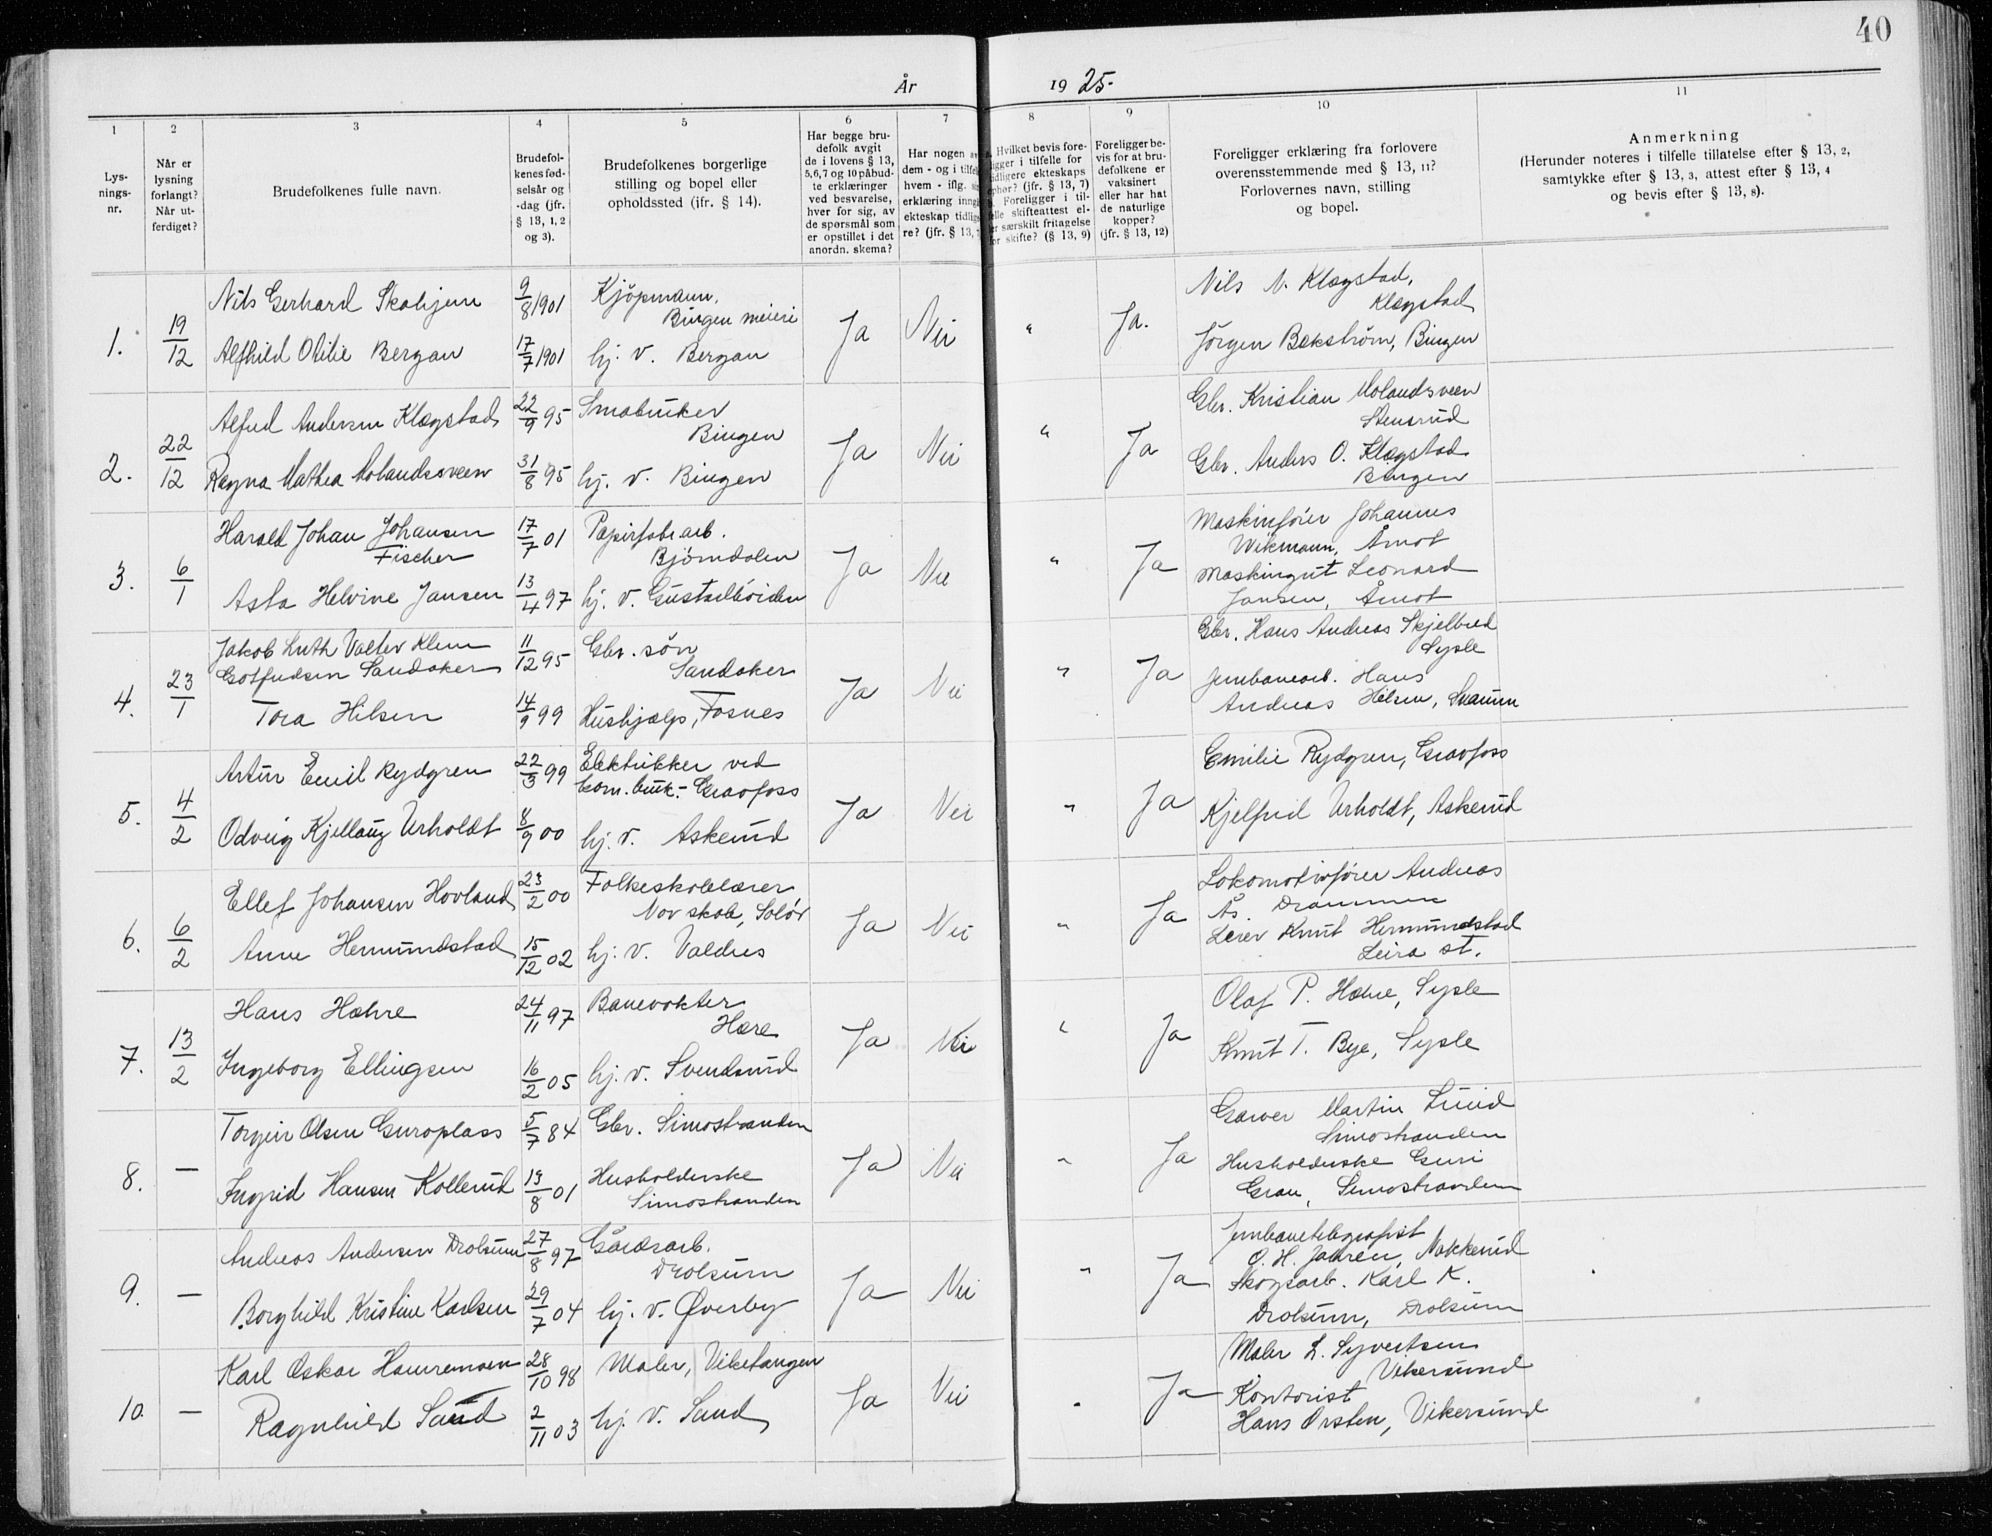 40
År 1925.
1 2 3 4 5 6 7 8 9 10 11
Lys-
nings-
nr.
Når er
lysning
forlangt?
Når ut-
ferdiget?
Brudefolkenes fulle navn.
Brudefol-
kenes fød-
selsår og
-dag (jfr.
§ 13, 1, 2
og 3).
Brudefolkenes borgerlige
stilling og bopel eller
opholdssted (ifr. § 14).
Har begge bru-
defolk avgit
de i lovens § 13,
5,6,7 og 10 påbud-
te erklæringer
ved besvarelse,
hver for sig, av
de spørsmål som
er opstillet i det
anordn. skema?
Har nogen av
dem - og i tilfe
hvem - iflg.
erklæring inng
ekteskap tidlig
re? (jfr. § 13,
Hvilket bevis fore-
ligger i tilfelle for
tidligere ekteskaps
ophør? (jfr. § 13, 7)
Foreligger i til-
felle skifteattest el-
er særskilt fritagelse
for skifte? (§ 13, 9)
Foreligger be-
vis for at bru-
defolkene er
vaksinert
eller har hat
de naturlige
kopper?
(jfr. § 13, 12)
Foreligger erklæring fra forlovere
overensstemmende med § 13, 11?
Forlovernes navn, stilling
og bopel.
Anmerkning
(Herunder noteres i tilfelle tillatelse efter § 13, 2,
samtykke efter § 13, 3, attest efter § 13, 4
og bevis efter § 13, 8).
1. 19/12 Nils Gerhard Skahjem 9/8 1901 Kjøpmann,
Bingen meieri
Alfhild Otilie Bergan 17/7 1901 hj. v. Bergan
Ja Nei " Ja.
Nils N. Klægstad,
Klægstad
Jörgen Bekström, Bingen
2. 22/12 Alfred Andersen Klægstad 22/9 95 Småbruker
Bingen
Ragna Mathea Molandsveen 31/8 95 hj. v. Bingen
Ja Nei " Ja
Gbr. Kristian Molandsveen
Stensrud
Gbr. Anders O. Klægstad
Bingen
3. 6/1 Harald Johan Johansen
Fischer 17/7 01 Papirfabr.arb.
Bjørndalen
Asta Helvine Jansen 13/4 97 hj. v. Gustadhöiden
Ja Nei " Ja
Maskinfører Johannes
Wikmann, Åmot
Maskingut Leonard
Jansen, Åmot
4. 23/1 Jakob Luth Valter Klem
Gotfredsen Sandaker 11/12 95 Gbr. søn
Sandaker
Tora Hilsen 14/9 99 Hushjælp, Fosnes
Ja Nei " Ja
Gbr. Hans Andreas Skjelbred
Sysle
Jernbanearb. Hans
Andreas Hilsen, Snarum
5. 4/2 Artur Emil Rydgren 22/3 99 Elektrikker ved
kom. bruk. - Gravfoss
Odveig Kjellaug Urholdt 8/9 00 hj. v. Askerud
Ja Nei " Ja
Emilie Rydgren, Gravfoss
Kjelfred Urholdt, Askerud
6. 6/2 Ellef Johansen Hovland 23/2 00 Folkeskolelærer
Nor skole, Solør
Anne Hermundstad 15/12 02 hj. v. Valdres
Ja Nei " Ja
Lokomotivfører Andreas
Ås. Drammen
Lærer Knut Hermundstad
Leira st.
7. 13/2 Hans Hæhre 24/11 97 Banevokter
Hære
Ingeborg Ellingsen 16/2 05 hj. v. Svendsrud
Ja Nei " Ja
Olaf P. Hæhre, Sysle
Knut T. Bye, Sysle
8. — Torgeir Olsen Guroplass 5/7 84 Gbr. Simostranden
Ingrid Hansen Kollerud 19/8 01 Husholderske
Simostranden
Ja Nei " Ja
Garver Martin Lund
Simostranden
Husholderske Guri
Grau, Simostranden
9. — Andreas Andersen Drolsum 27/8 97 Gårdsarb.
Drolsum
Borghild Kristine Karlsen 29/7 04 hj. v. Øverby
Ja Nei " Ja
Jernbanetelegrafist
O. H. Jahren, Nakkerud
Skogsarb. Karl K.
Drolsum, Drolsum
10. — Karl Oskar Hamremoen 28/10 98 Maler, Viketangen
Ragnhild Sand 2/11 03 hj. v. Sand
Ja Nei " Ja
Maler L. Syvertsen
Vikersund
Kontorist
Hans Orsten, Vikersund